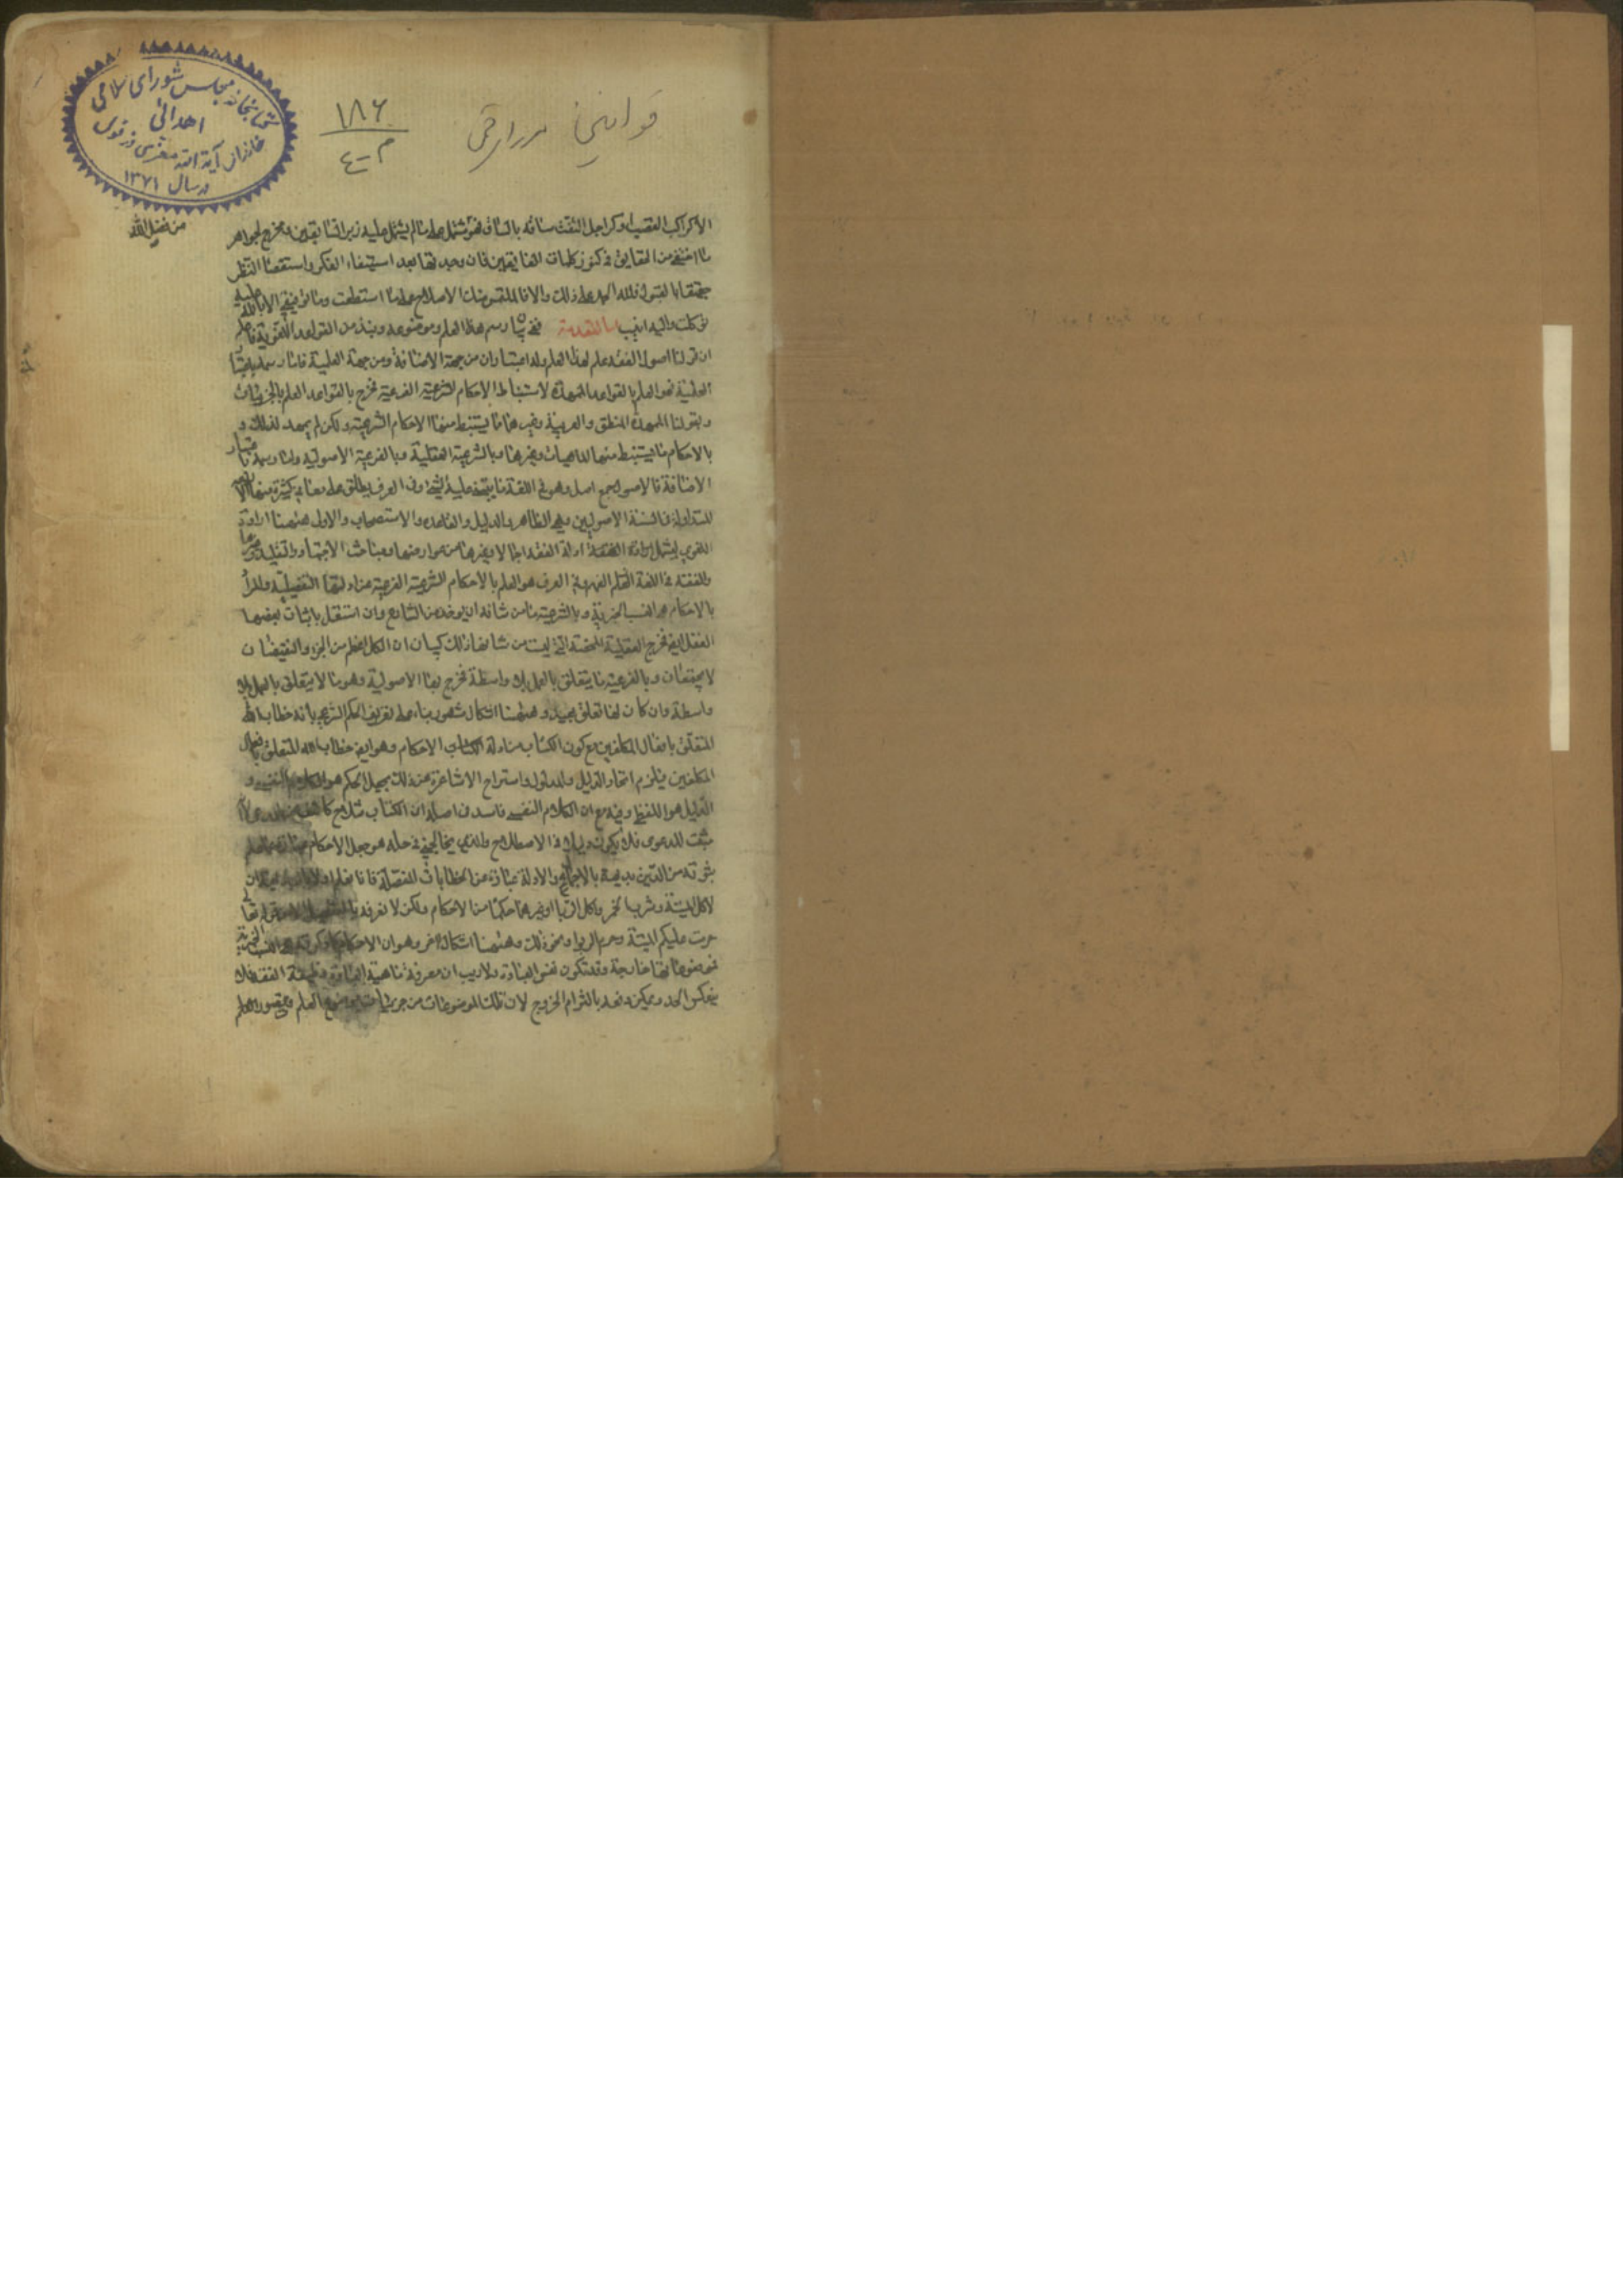 کتابخانه مجلس شورای اسلامی
اهدائی
خاندان آیة الله
در سال ۱۳۷۱
۱۸۶
قوانین
من فضل الله
فان وجدتها بعد استيفاء الفكر واستقصاء النظر
فلله الحمد على ذلك والا فالملتمس منك الاصلاح على ما استطعت وما توفيقي الا بالله عليه
توكلت واليه انيب اما المقدمة ففي بيان رسم هذا العلم وموضوعه ونبذ من القواعد اللغوية
ان قولنا اصول الفقه علم لهذا العلم وله اعتباران من جهة الاضافة ومن جهة العلمية فاما رسمه باعتبار
العلمية فهو العلم بالقواعد الممهدة لاستنباط الاحكام الشرعية الفرعية فخرج بالقواعد العلم بالجزئيات
وبقولنا الممهدة المنطق والعربية وغيرهما مما يستنبط منها الاحكام الشرعية ولكن لم يمهد لذلك و
بالاحكام ما يستنبط منها الماهيات وغيرها وبالشرعية العقلية وبالفرعية الاصولية واما رسمه باعتبار
الاضافة فالاصول جمع اصل وهو في اللغة ما يبتنى عليه الشيء وفي العرف يطلق على معان كثيرة منها
المتداولة في السنة الاصوليين وهي الظاهر والدليل والقاعدة والاستصحاب والاولى هيهنا ارادة
اللغوي ليشمل ادلة الفقه اجمالا وغيرها من عوارضها ومباحث الاجتهاد والتقليد وغيرها
والفقه في اللغة الفهم وفي العرف هو العلم بالاحكام الشرعية الفرعية عن ادلتها التفصيلية والمراد
بالاحكام هي النسب الجزئية وبالشرعية ما من شانه ان يوخذ من الشارع وان استقل باثبات بعضها
العقل ايض فخرج العقلية المحضة التي ليست من شانها ذلك كبيان ان الكل اعظم من الجزء والنقيضان
لا يجتمعان وبالفرعية ما يتعلق بالعمل بلا واسطة فخرج بها الاصولية وهو ما لا يتعلق بالعمل بلا
واسطة وان كان لها تعلق بعيد وهيهنا اشكال مشهور بناء على تعريف الحكم الشرعي بانه خطاب الله
المتعلق بافعال المكلفين مع كون الكتاب من ادلة الاحكام وهو ايض خطاب الله المتعلق بافعال
المكلفين فيلزم اتحاد الدليل والمدلول واستراح الاشاعرة عن ذلك بجعل الحكم هو الكلام النفسي و
الدليل هو اللفظي وفيه مع ان الكلام النفسي فاسد في اصله ان الكتاب مثلا ح كاشف عن المدعى لا
مثبت للدعوى فلا يكون دليلا في الاصطلاح والذي يخالجني في حله هو جعل الاحكام عبارة عما علم
ثبوته من الدين بديهة بالاجمال والادلة عبارة عن الخطابات المفصلة فانا نعلم اولا بالبديهة ان
لاكل الميتة وشرب الخمر واكل الربا وغيرها حكما من الاحكام ولكن لا نعرفه بالتفصيل الا من قوله تعالى
حرمت عليكم الميتة وحرم الربوا ونحو ذلك وهيهنا اشكال اخر وهو ان الاحكام كما ذكرت هي النسب الجزئية
فموضوعاتها خارجة وقد تكون نفس العبادة ولا ريب ان معرفة ماهية العبادة وظيفة الفقه فلا
ينعكس الحد ويمكن دفعه بالتزام الخروج لان تلك الموضوعات من جزئيات موضوع العلم وتصور العلم